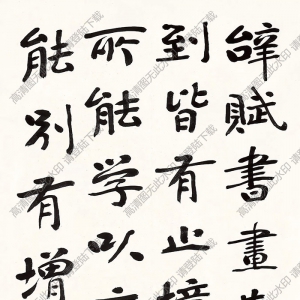 辭賦書畫
到皆有止境
所能學以
能別有增